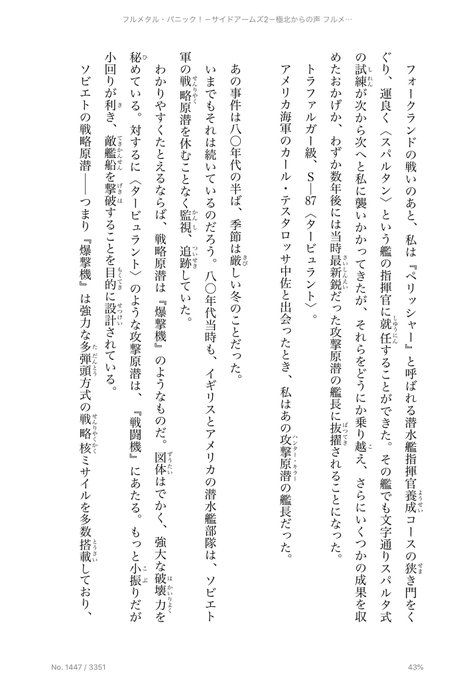 フルメタル・パニック！－サイドアームズ2－極北からの声 フルメ…
フォークランドの戦いのあと、私は『ペリッシャー』と呼ばれる潜水艦指揮官養成コースの狭き門をく
ぐり、運良く〈スパルタン〉という艦の指揮官に就任することができた。その艦でも文字通りスパルタ式
の試練が次から次へと私に襲いかかってきたが、それらをどうにか乗り越え、さらにいくつかの成果を収
めたおかげか、わずか数年後には当時最新鋭だった攻撃原潜の艦長に抜擢されることになった。
トラファルガー級、S―87〈タービュラント〉。
アメリカ海軍のカール・テスタロッサ中佐と出会ったとき、私はあの攻撃原潜の艦長だった。
あの事件は八〇年代の半ば、季節は厳しい冬のことだった。
いまでもそれは続いているのだろう。八〇年代当時も、イギリスとアメリカの潜水艦部隊は、ソビエト
軍の戦略原潜を休むことなく監視、追跡していた。
わかりやすくたとえるならば、戦略原潜は『爆撃機』のようなものだ。図体はでかく、強大な破壊力を
秘めている。対するに〈タービュラント〉のような攻撃原潜は、『戦闘機』にあたる。もっと小振りだが
小回りが利き、敵艦船を撃破することを目的に設計されている。
ソビエトの戦略原潜――つまり『爆撃機』は強力な多弾頭方式の戦略核ミサイルを多数搭載しており、
No. 1447 / 3351
43%